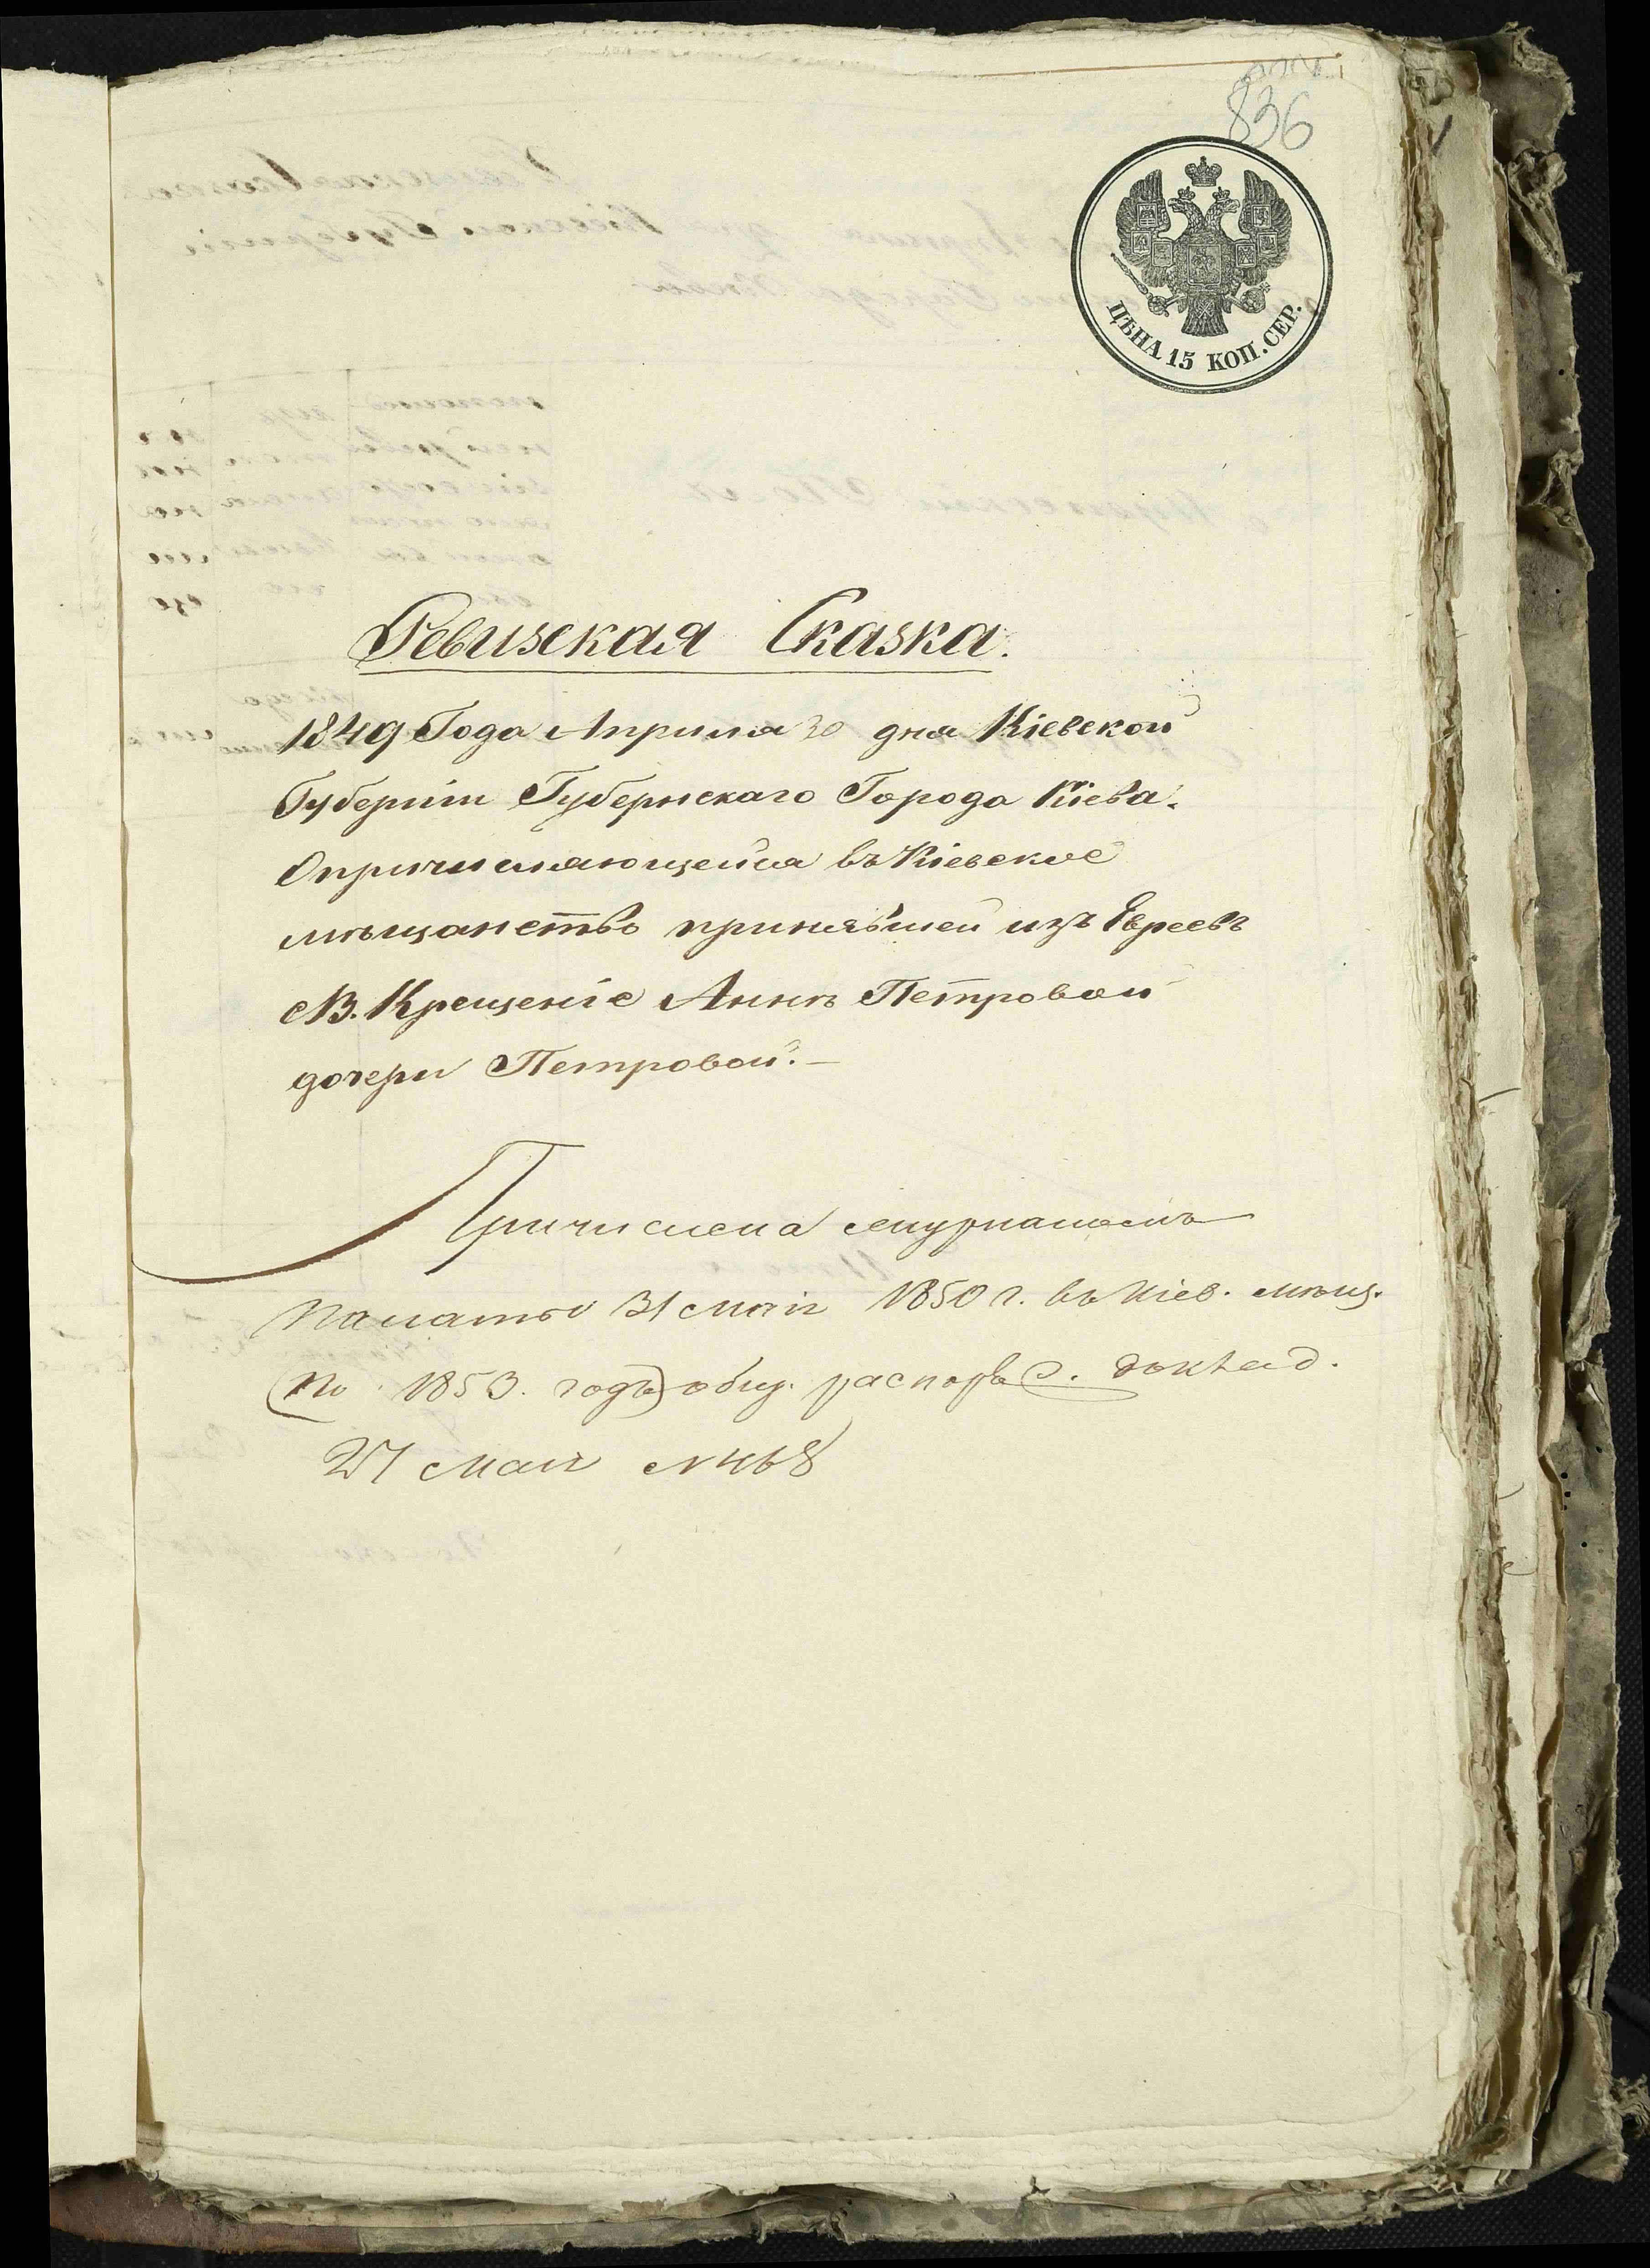 836
ЦѢНА 15 КОП. СЕР.
Ревизская Сказка.
1849 Года Апрѣля 30 дня Кіевской
Губерніи Губернскаго Города Кіева.
О причисляющейся въ Кіевское
мѣщанство принявшей изъ Евреевъ
Св. Крещеніе Аннѣ Петровой
дочери Петровой.—
Причислена журналомъ
Палаты 31 Мая 1850 г. въ Кіев. мѣщ.
(по 1853. годъ) общ. распор. доклад.
27 Мая № 468